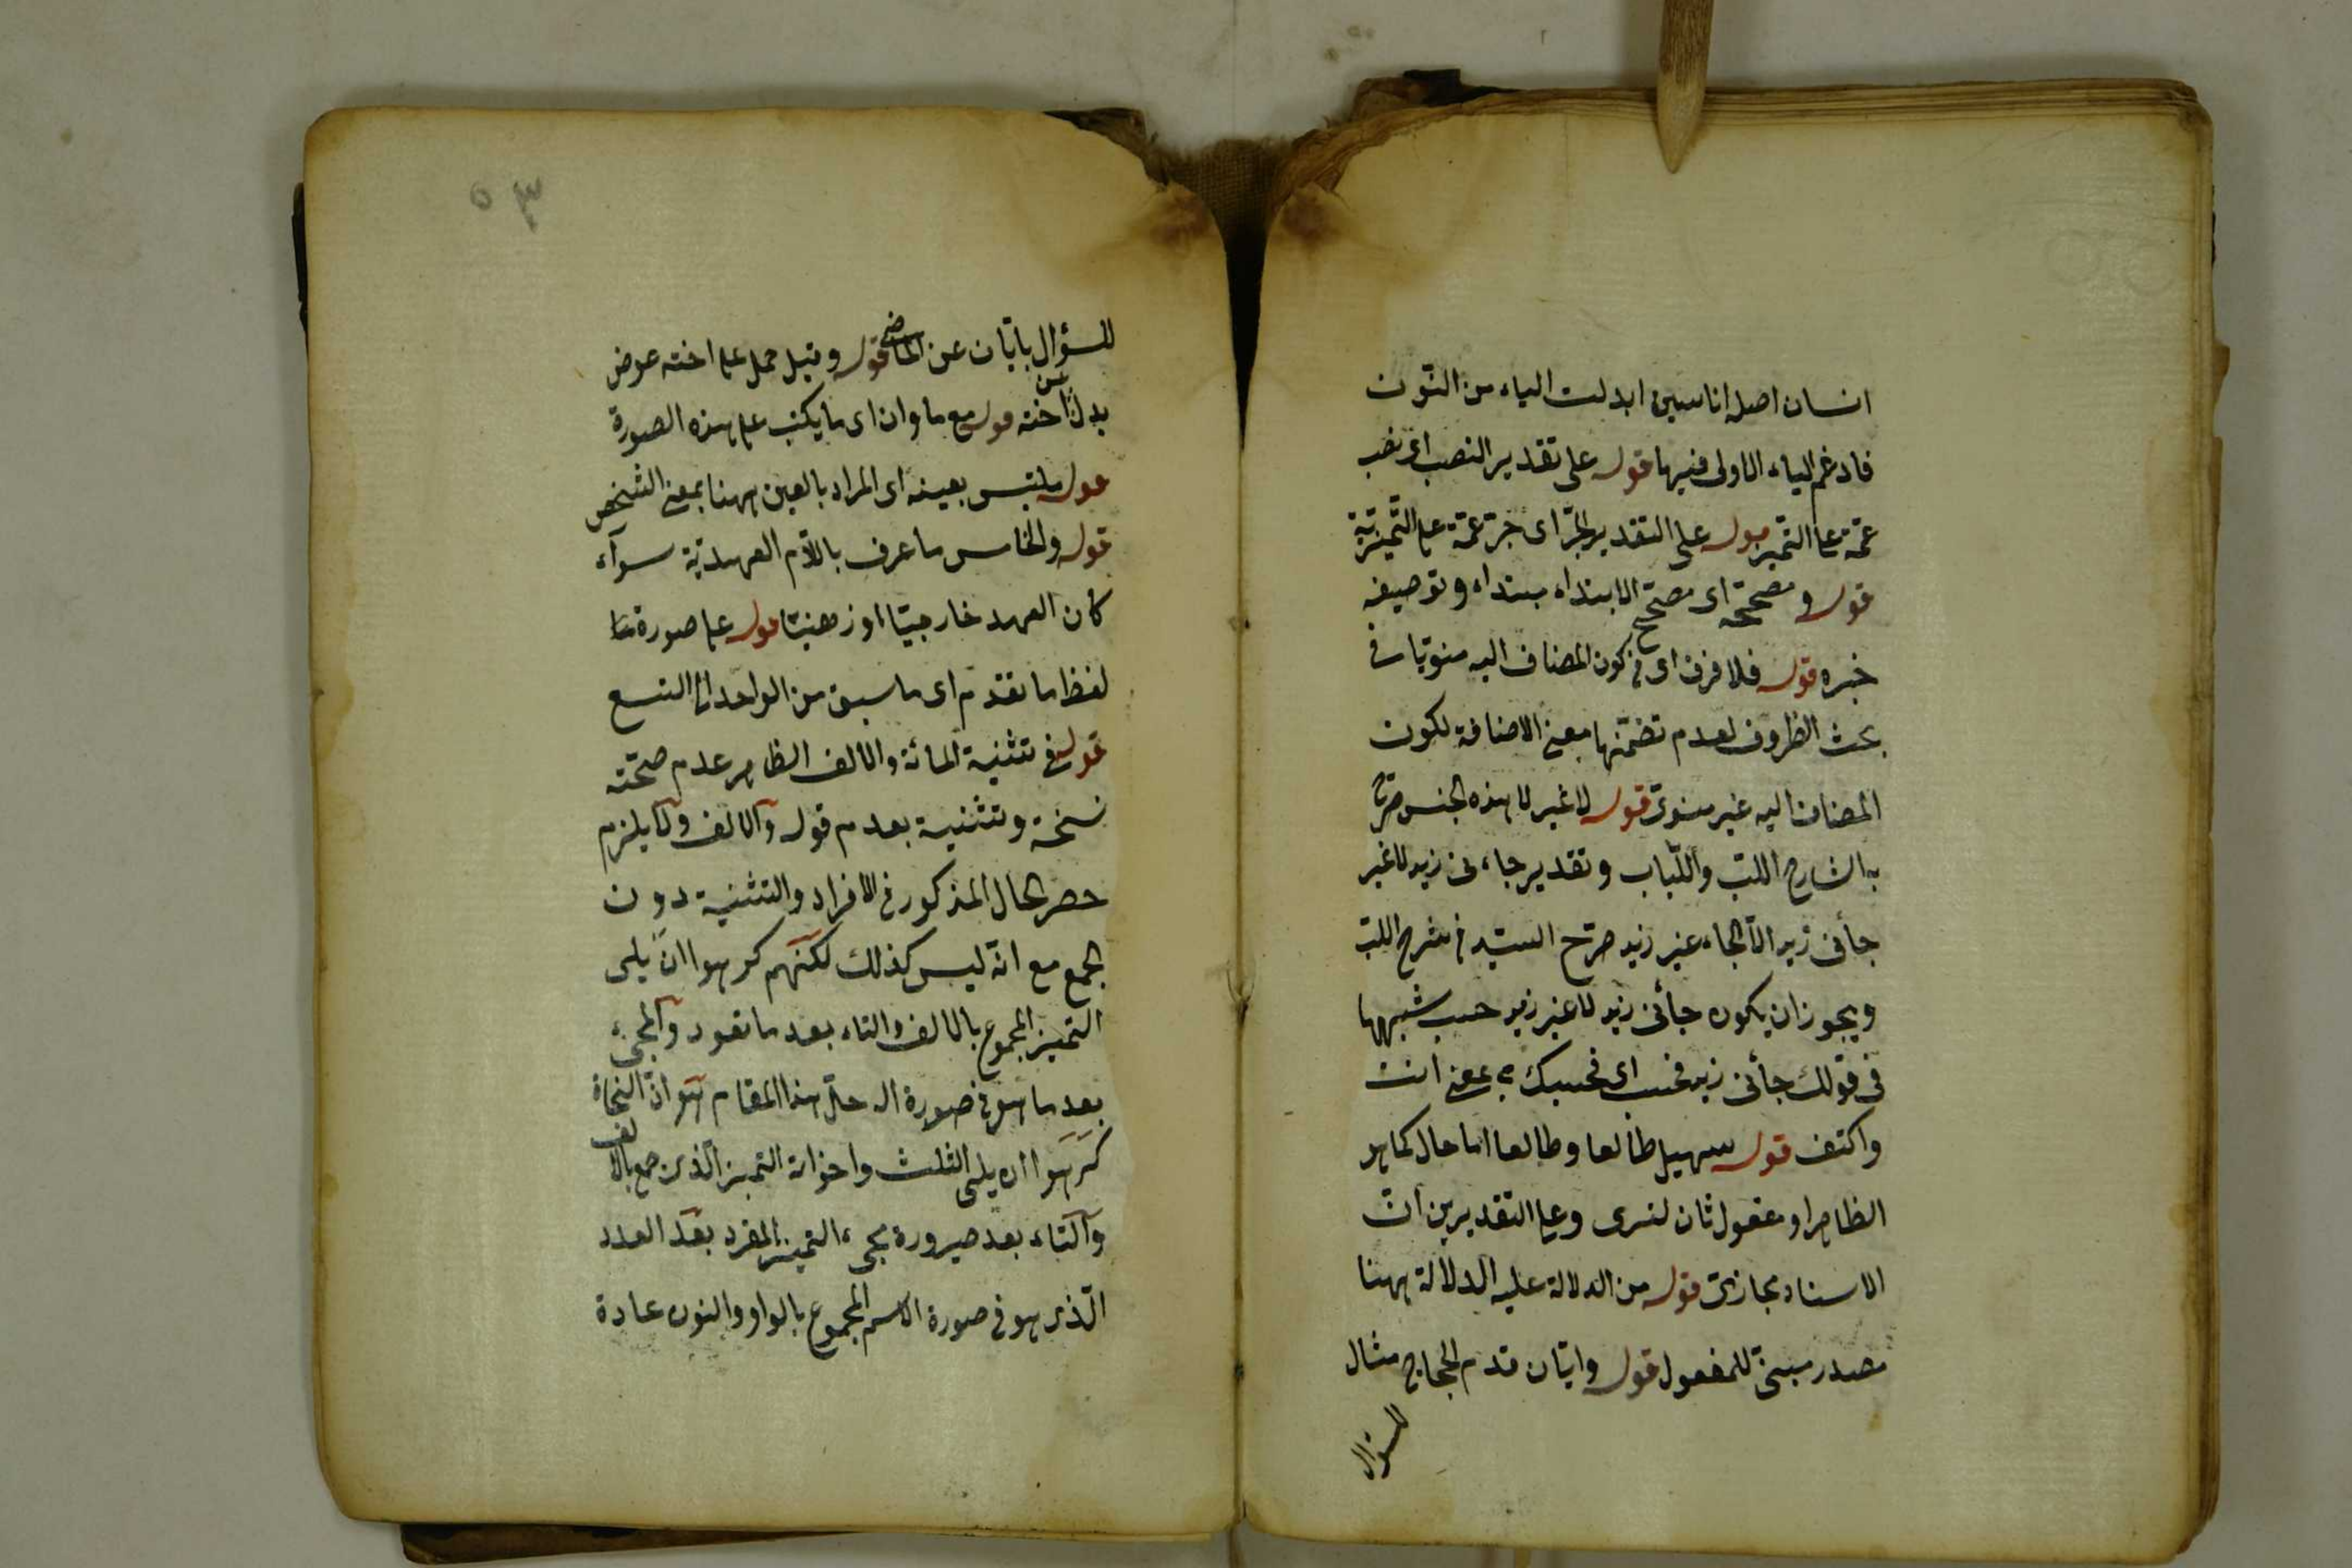 انسان اصله اناسين ابدلت الياء من النّون
فادغم الياء الاولى فيها قوله على تقدير النصب اى نصب
عمّة على التّميز قوله على التقدير الجرّ اى جرّ عمّة على التّميزيّة
قوله و مصححة اى مصحّح الابتداء مبتداء و توصيفه
خبره قوله فلا فرق اى فى كون المضاف اليه منويّا فى
بحث الظروف لعدم تضمّنها معنى الاضافة لكون
المضاف اليه غير منوىّ قوله لا غير لا هذه لجنس صرّح
به الشارح اللبّ واللّباب و تقدير جاءنى زيد لا غير
جأنى زيد الّا لجاء غير زيد صرّح السيّد فى شرح اللبّ
ويجوز ان يكون جأنى زيد لا غير زيد حسب شبهها
فى قولك جأنى زيد فحسب اى فحسبك بمعنى انت
واكتف قوله سهيل طالعا وطالعا اما حال كما هو
الظاهر او مفعول ثان لترى وعلى التقديرين انّ
الاسناد مجازىّ قوله من الدلالة عليه الدلالة ههنا
مصدر مبنىّ للمفعول قوله وايّان قدم الحجاج مثال
للسؤال
٥٣
للسؤال بايّان عن الماضى قوله وقيل حمل على اخته عوض
بدل عن اخته قوله مع ما وان اى ما يكتب على هذه الصورة
قوله ملتبس بعينه اى المراد بالعين ههنا بمعنى الشخص
قوله والخامس ما عرف باللّام العهديّة سوآء
كان العهد خارجيّا او ذهنيّا قوله على صورة
لفظ ما تقدم اى ما سبق من الواحد الى التسع
قوله فى تثنية المائة والالف الظاهر عدم صحّته
نسخة وتثنية بعدم قوله والالف ولّا يلزم
حصر الحال المذكور فى الافراد والتثنية دون
الجمع مع انّه ليس كذلك لكنّهم كرهوا ان يلى
التميز المجموع بالالف والتاء بعد ما تعود والمجىء
بعد ما هو فى صورة الـ حلّ هذا المقام هو انّ النحاة
كرهوا ان يلى الثلث واخواته التميز الّذى جمع بالالف
والتاء بعد صيرورة مجىء التميز المفرد بعد العدد
الّذى هو فى صورة الاسم المجموع بالواو والنون عادة